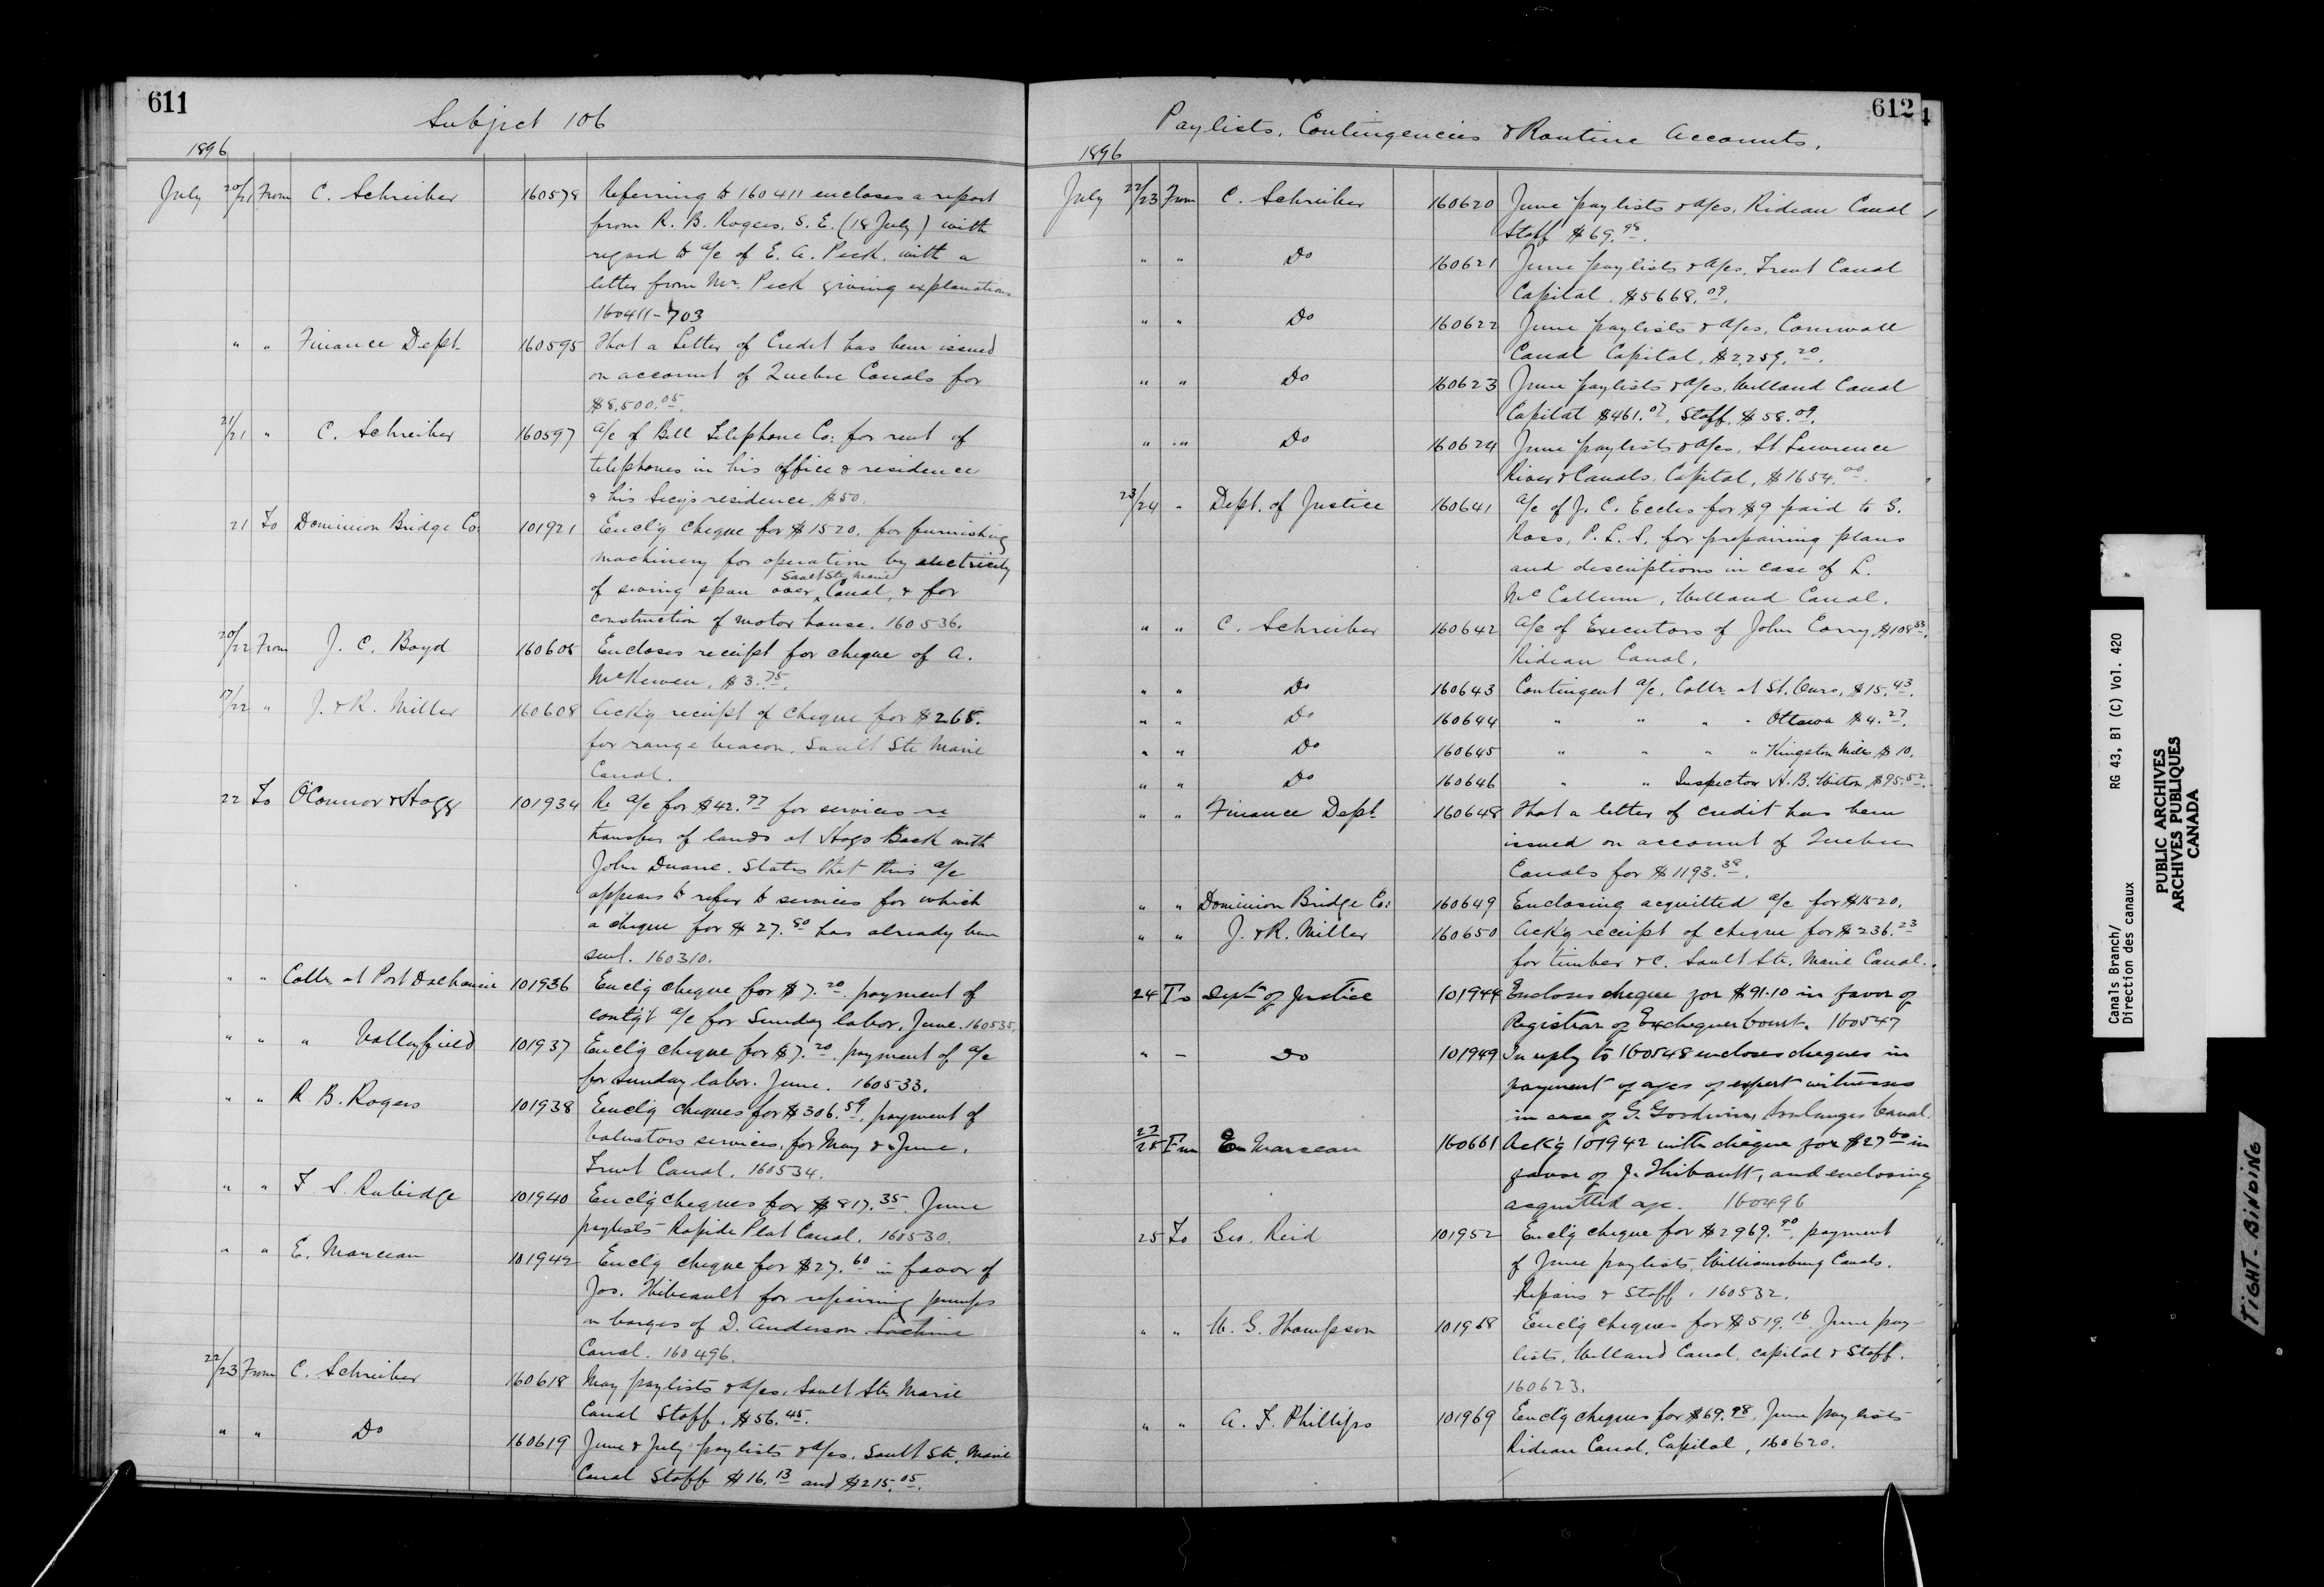 611
Subject 106
1896
July 20/21 From C. Schreiber 160578 Referring to 160411 encloses a report
from R. B. Rogers, S. E. (18 July) with
regard to a/c of E. A. Peck, with a
letter from Mr. Peck giving explanations
160411-703
" " Finance Dept. 160595 That a Letter of Credit has been issued
on account of Quebec Canals for
$8,500.05.
21/21 " C. Schreiber 160597 a/c of Bell Telephone Co: for rent of
telephones in his office & residence
& his Secy's residence, $50.
21 To Dominion Bridge Co: 101921 Encl'g cheque for $1520. for furnishing
machinery for operation by electricity
Sault Ste Marie
of swing span over ^ Canal, & for
construction of motor house. 160536.
20/22 From J. C. Boyd 160605 Encloses receipt for cheque of A.
McKewen, $3.75.
17/22 " J. & R. Miller 160608 Ack'g receipt of cheque for $265.
for range beacon, Sault Ste Marie
Canal.
22 To O'Connor & Hogg 101934 Re a/c for $42.97 for services re
transfer of lands at Hogs Back with
John Duane. States that this a/c
appears to refer to services for which
a cheque for $27.80 has already been
sent. 160310.
" " Collr. at Port Dalhousie 101936 Encl'g cheque for $7.20. payment of
contg't a/c for Sunday labor, June. 160535.
" " " Valleyfield 101937 Encl'g cheque for $7.20. payment of a/c
for Sunday labor. June. 160533.
" " R. B. Rogers 101938 Encl'g cheques for $306.59, payment of
Valuators services, for May & June,
Trent Canal. 160534.
" " T. S. Rubidge 101940 Encl'g cheques for $817.35. June
paylists Rapide Plat Canal. 160530.
" " E. Marceau 101942 Encl'g cheque for $27.60 in favor of
Jos. Thibeault for repairing pumps
on barges of D. Anderson Lachine
Canal. 160496.
22/23 From C. Schreiber 160618 May paylists & a/cs, Sault Ste Marie
Canal Staff, $56.45.
" " Do 160619 June & July paylists & a/cs, Sault Ste. Marie
Canal Staff $16.13 and $215.05.
612
Paylists, Contingencies & Routine Accounts.
1896
July 22/23 From C. Schreiber 160620 June paylists & a/cs, Rideau Canal
Staff $69.98.
" " Do 160621 June paylists & a/cs, Trent Canal
Capital. $5668.09.
" " Do 160622 June paylists & a/cs, Cornwall
Canal Capital, $2,259.20.
" " Do 160623 June paylists & a/cs, Welland Canal
Capital $461.07, Staff, $58.09.
" " Do 160624 June paylists & a/cs, St. Lawrence
River & Canals, Capital, $1654.00.
23/24 " Dept. of Justice 160641 a/c of J. C. Eccles for $9 paid to G.
Ross, P. L. S, for preparing plans
and descriptions in case of L.
McCallum, Welland Canal.
" " C. Schreiber 160642 a/c of Executors of John Corry, $108.33,
Rideau Canal.
" " Do 160643 Contingent a/c, Collr. at St. Ours, $15.43.
" " Do 160644 " " " " Ottawa $4.27.
" " Do 160645 " " " " Kingston Mills $10.
" " Do 160646 " " Inspector H. B. Witton, $95.52.
" " Finance Dept 160648 That a letter of credit has been
issued on account of Quebec
Canals for $1193.38.
" " Dominion Bridge Co: 160649 Enclosing acquitted a/c for $1520.
" " J. & R. Miller 160650 Ack'g receipt of cheque for $236.23
for timber &c. Sault Ste. Marie Canal.
24 To Dept of Justice 101944 Encloses cheque for $91.10 in favor of
Registrar of Exchequer Court. 160547
" — Do 101949 In reply to 160548 encloses cheques in
payment of a/cs of expert witnesses
in case of G. Goodwin, Soulanges Canal.
23/25 From E Marceau 160661 Ack'g 101942 with cheque for $27.60 in
favor of J. Thibault, and enclosing
acquitted a/c. 160496
25 To Geo. Reid 101952 Encl'g cheque for $2969.90, payment
of June paylists, Williamsburg Canals.
Repairs & Staff. 160532.
" " W. G. Thompson 101968 Encl'g cheques for $519.16 June pay-
lists, Welland Canal, capital & Staff.
160623.
" " A. T. Phillips 101969 Encl'g cheques for $69.98, June paylists
Rideau Canal, Capital, 160620.
Canals Branch/
Direction des canaux
RG 43, B1 (C) Vol. 420
PUBLIC ARCHIVES
ARCHIVES PUBLIQUES
CANADA
TIGHT BINDING